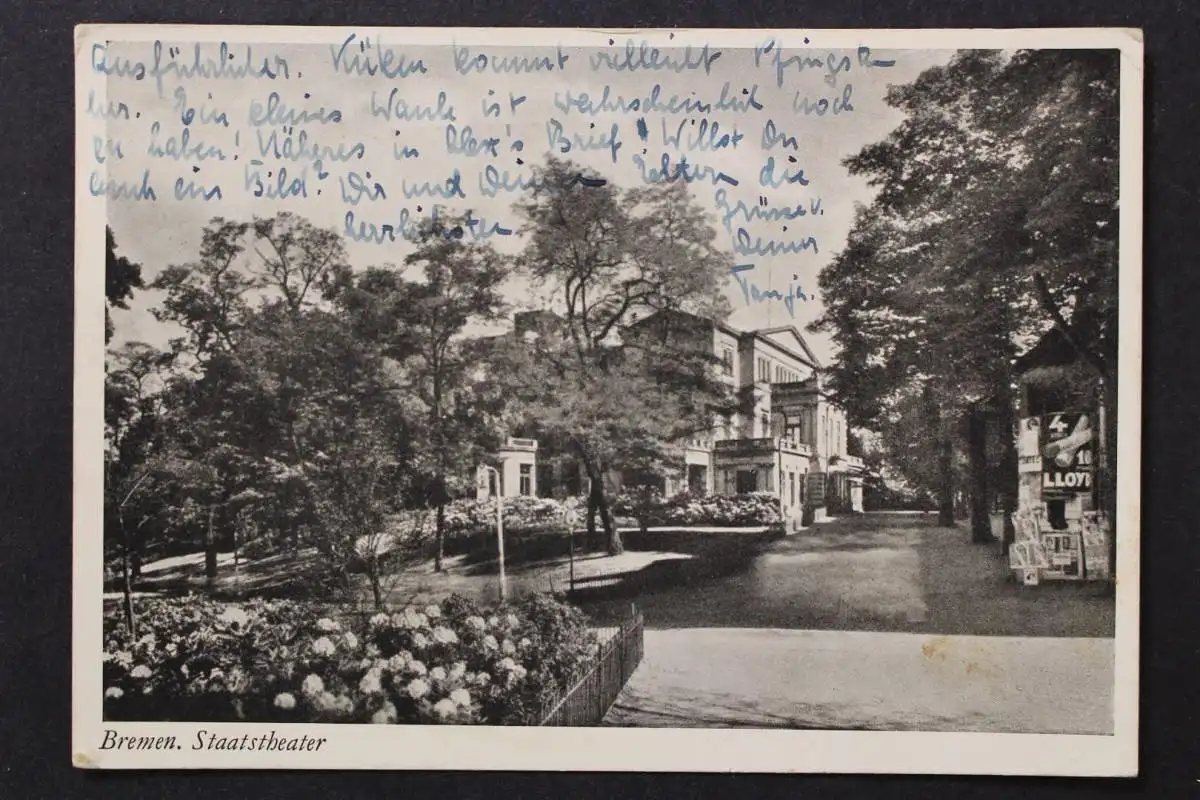 Ausführlicher. Küken kommt vielleicht Pfingsten
her. Ein kleines Wanke ist wahrscheinlich noch
zu haben! Näheres in Alex's Brief! Willst Du
auch ein Bild? Dir und Deinen Eltern die
herzlichsten Grüsse v.
Deiner
Tanja.
4
10
LLOYD
Bremen. Staatstheater